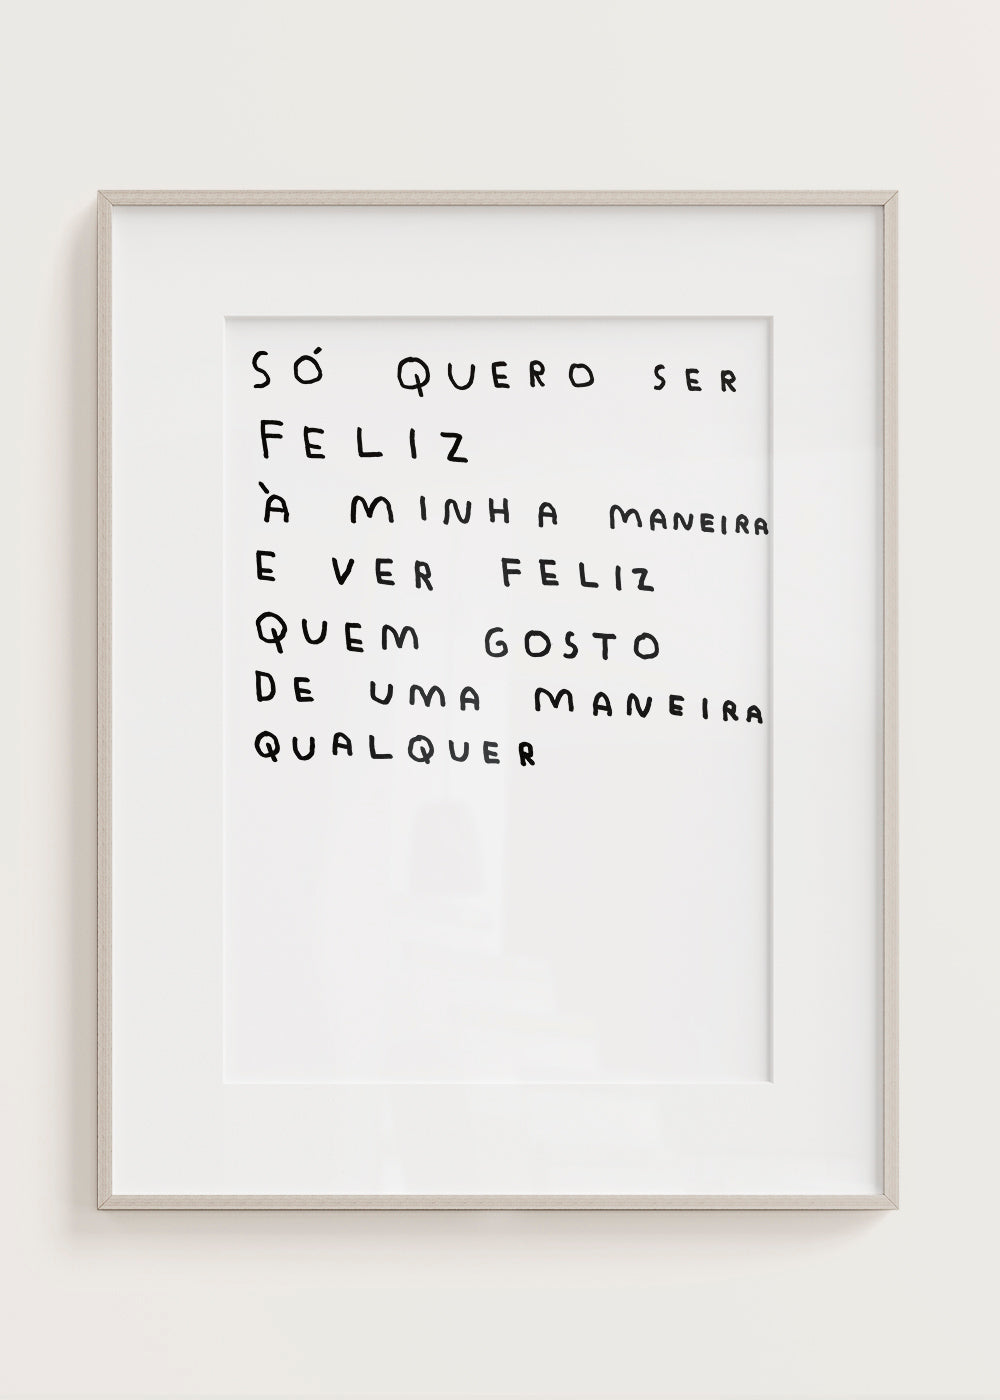 SÓ QUERO SER
FELIZ
À MINHA MANEIRA
E VER FELIZ
QUEM GOSTO
DE UMA MANEIRA
QUALQUER